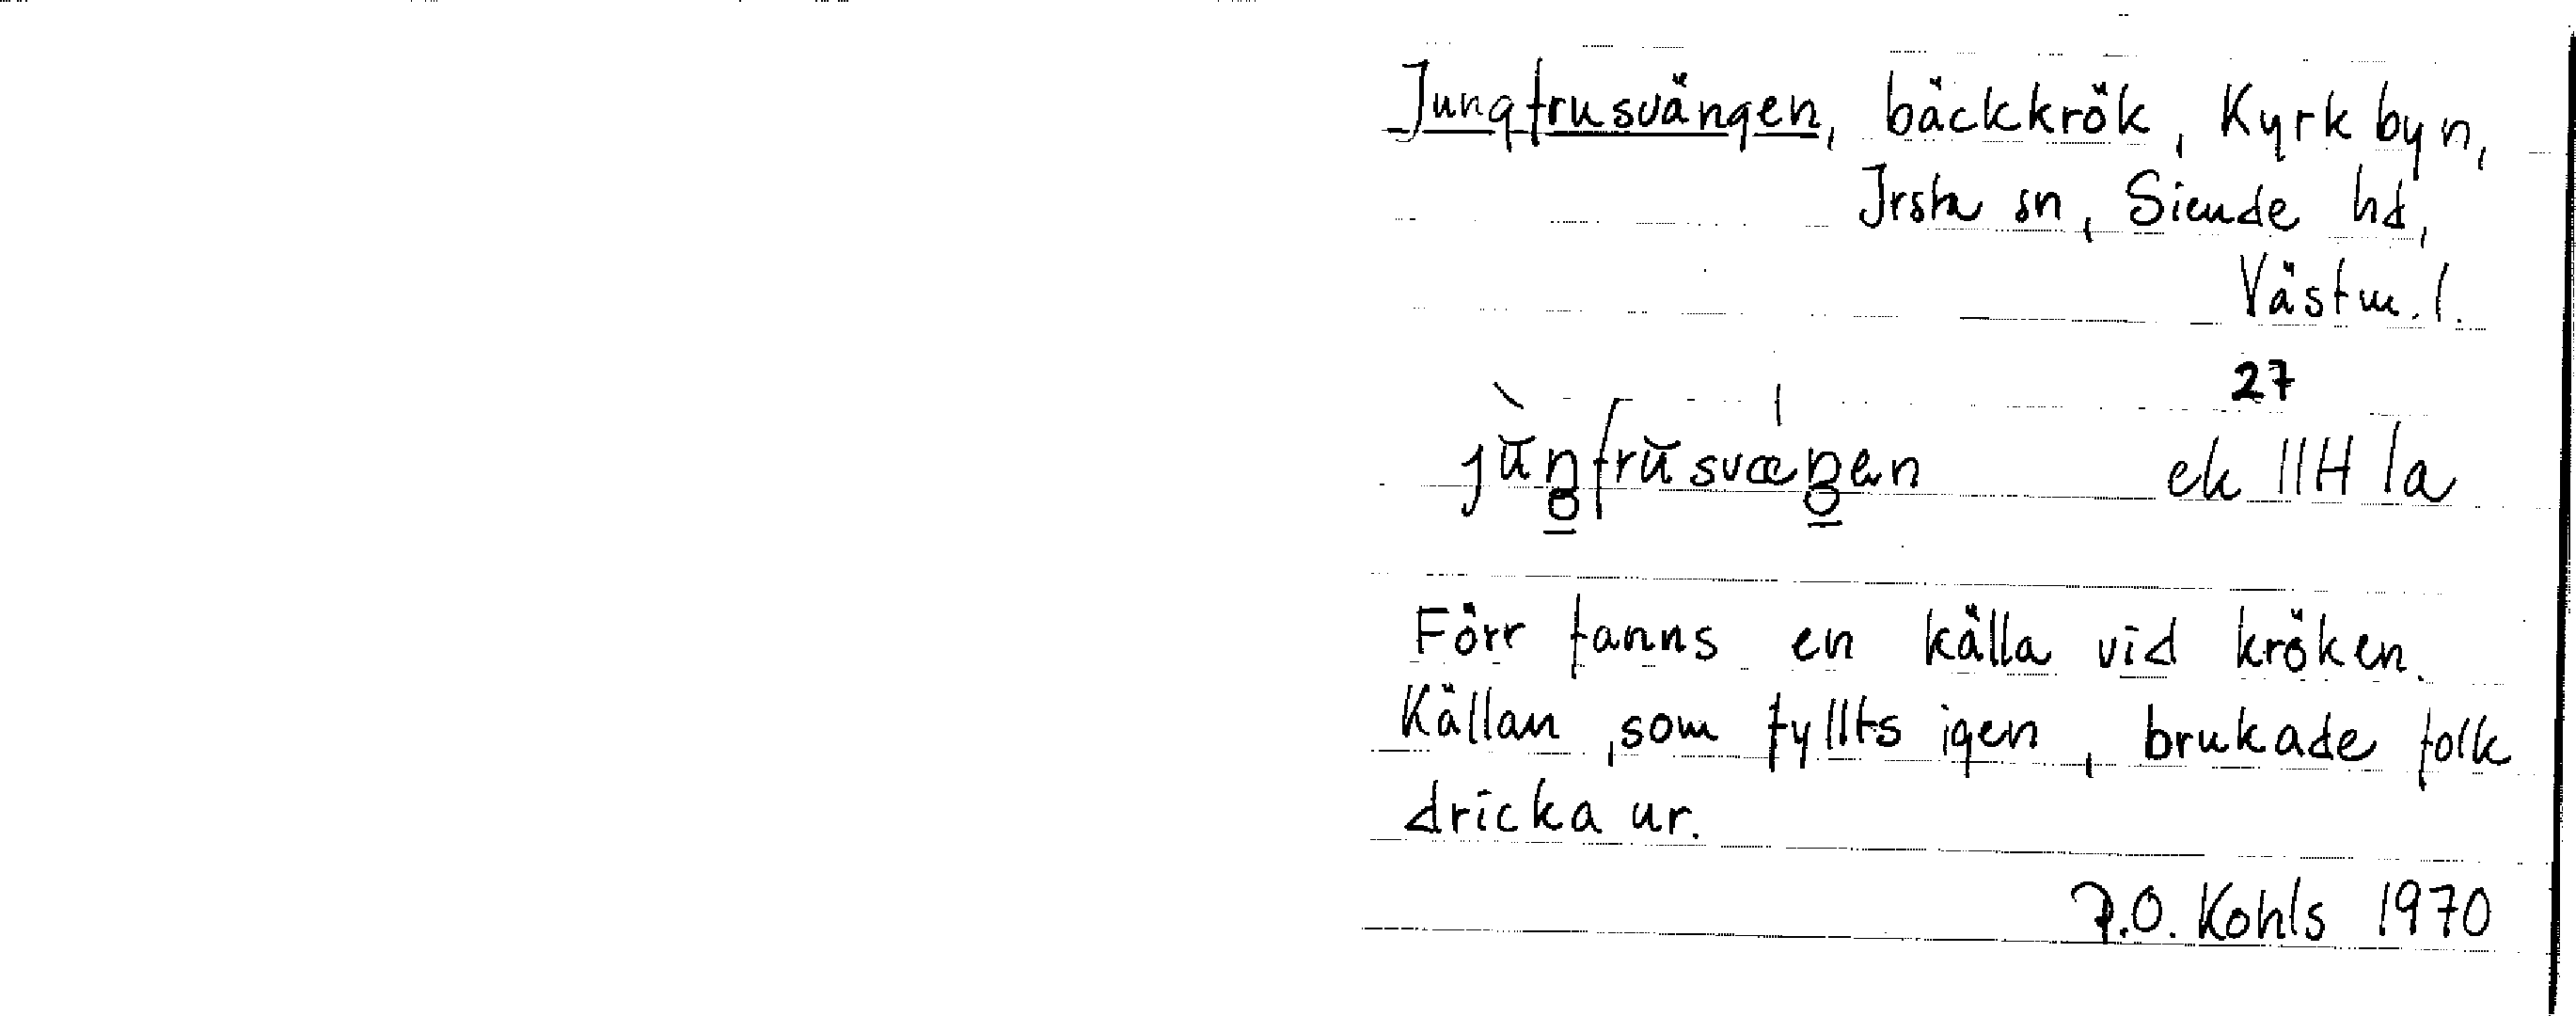 Jungfrusvängen, bäckkrök, Kyrkbyn,
Irsta sn, Siende hd,
Västm. l.
27
ek 11H 1a
Förr fanns en källa vid kröken.
Källan, som fyllts igen, brukade folk
dricka ur.
P.O. Kohls 1970